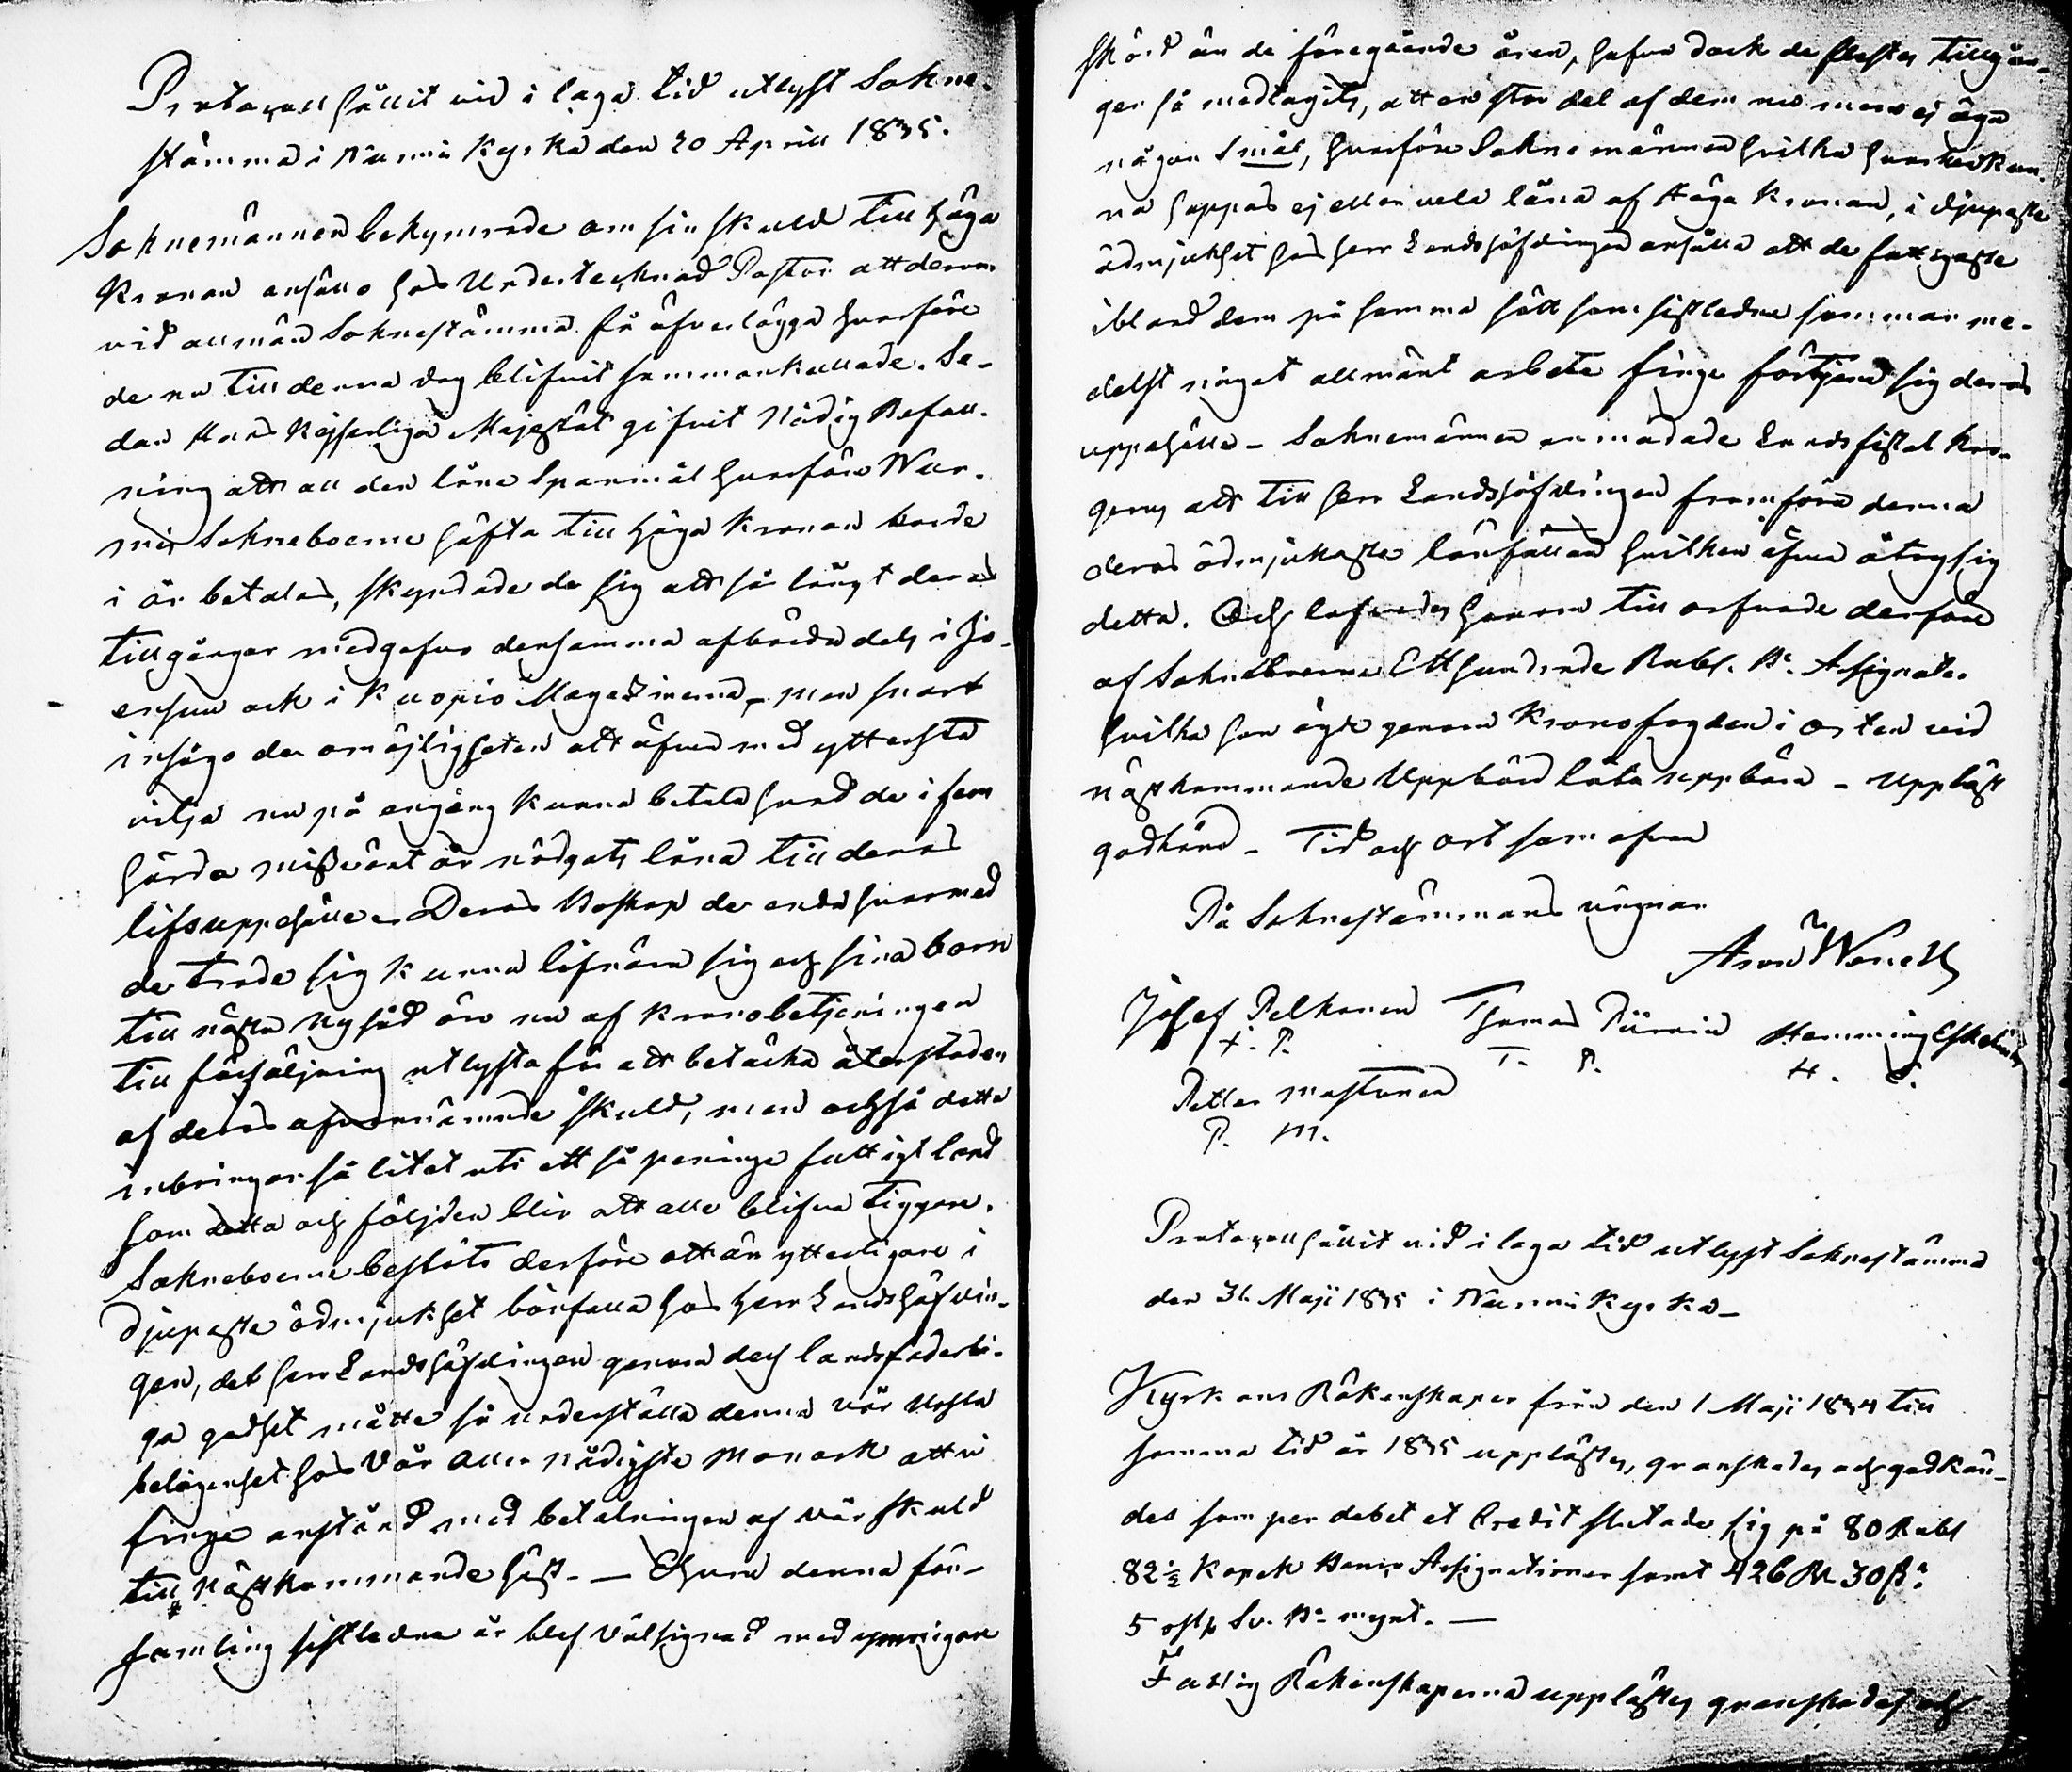 Protocoll hållit vid i laga tid utlyst Sokne-
stämma i Nurmis Kyrka den 20 Aprill 1835.
Soknemännen bekymrade om sin skuld till höga
Kronan anhöllo hos Undertecknad Pastor att derom
vid allmän Soknestämma få öfverlägga hvarföre
de nu till denna dag blifvit sammankallade. Se-
dan Hans Kejserliga Majestät gifvit Nådig Befall-
ning att all den låne Spanmål hvarföre Nur-
mis Sokneboerne häfta till höga Kronan borde
i år betalas, skyndade de sig att så långt deras
tillgångar medgofvo densamma afbörda dels i Jo-
ensuu och i Kuopio Magazinerna, men snart
insågo de omöjligheten att äfven med yttersta
vilja nu på engång kunna betala hvad de i fem
hårda missväxt år nödgats låna till deras
lifsuppehälle. Deras Boskap de enda hvarmed
de trodde sig kunna lifnära sig och sina barn
till nästa Nysåd äro nu af kronobetjeningen
till försäljning utlysta för att betäcka återstoden
af deras ofvannämnde skuld, men också detta
inbringar så litet uti ett så peninge fattigt land
som detta och följden blir att alle blifva Tiggare.
Sokneboerne beslöto derföre att än ytterligare i
djupaste ödmjukhet bönfalla hos Herr Landshöfdin-
gen, det Herr Landshöfdingen genom dess landsfaderli-
ga godhet måtte så underställa denna vår usla
belägenhet hos Vår Aller nådigste Monark att vi
finge anstånd med betalningen af vår skuld
till nästkommande höst. — Ehuru denna för-
samling sistledne år blef välsignad med ymnigare
skörd än de föregående åren, hafva dock de flestes tillgån-
gar så medtagits, att en stor del af dem nu mera ej äga
någon Smål, hvarföre Soknemännen hvilka hvarken kun-
na hoppas ej eller vela låna af Höga Kronan, i djupaste
ödmjukhet hos Herr Landshöfdingen anhålla att de fattigaste
ibland dem på samma sätt som sistledne sommar me-
delst något allmänt arbete finge förtjena sig deras
uppehälle - Soknemännen anmodade Landsfiskal Kro-
gerus att till Herr Landshöfdingen framföra denna
deras ödmjukaste bönfallan hvilken äfven åtog sig
detta. Och lofvades honom till arfvode derföre
af Sokneboerne Ett hundrade Rubl. Bo Assignate.
hvilka han ägde genom Kronofogden i orten vid
nästkommande Uppbörd låta uppbära - Uppläst
godkänd - Tid och ort som ofvan
På Soknestämmans vägnar
Josef Pelkonen Thomas Piirnin Hemming Eskelin
T. P. H. E.
Petter Mustonen
P. M.
Protocoll hållit vid i laga tid utlyst Soknestämma
den 31 Maji 1835 i Nurmis Kyrka -
Kyrkans Räkenskaper från den 1 Maji 1834 till
samma tid år 1835 upplästes, granskades och godkän-
des som per debet et Credit slutade sig på 80 Rubl
82 ½ Kopek Banco Assignationer samt 426 Rd 30 s:
5 Sv. Bo mynt. —
Fattig Räkenskaperna upplästes granskades och